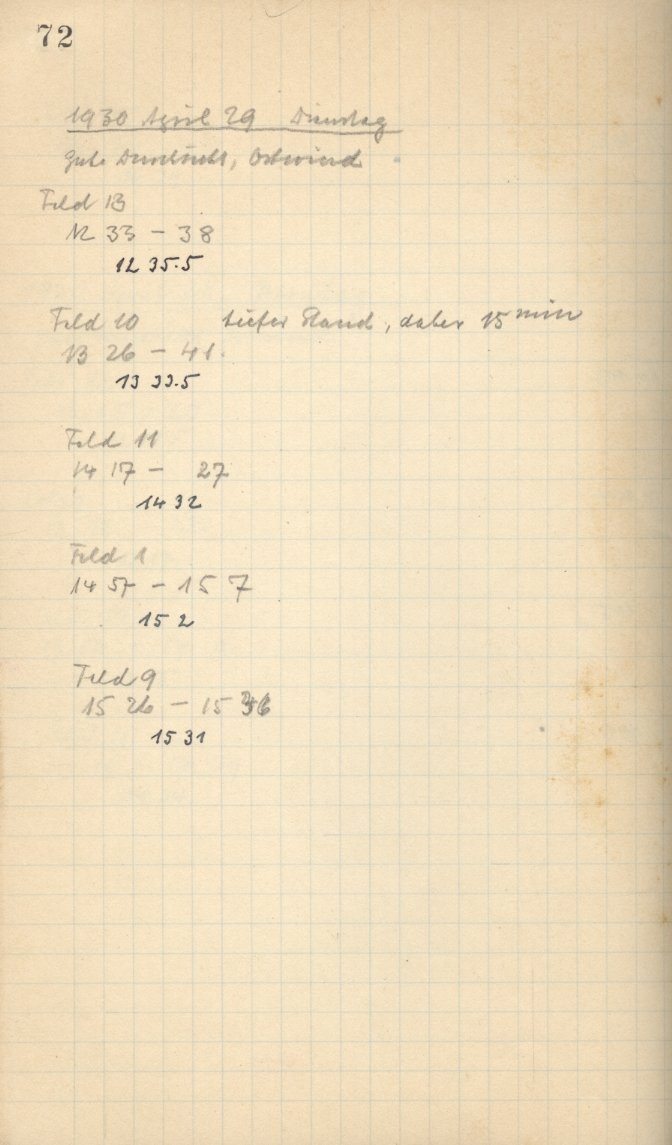 72
1930 April 29 Dienstag
Gute Durchsicht, Ostwind
Feld 13
12 33 – 38
12 35.5
Feld 10 tiefer Stand, daher 15 min
13 26 – 41.
13 33.5
Feld 11
14 17 – 27
14 32
Feld 1
14 57 – 15 7
15 2
Feld 9
15 26 – 15 36
15 31